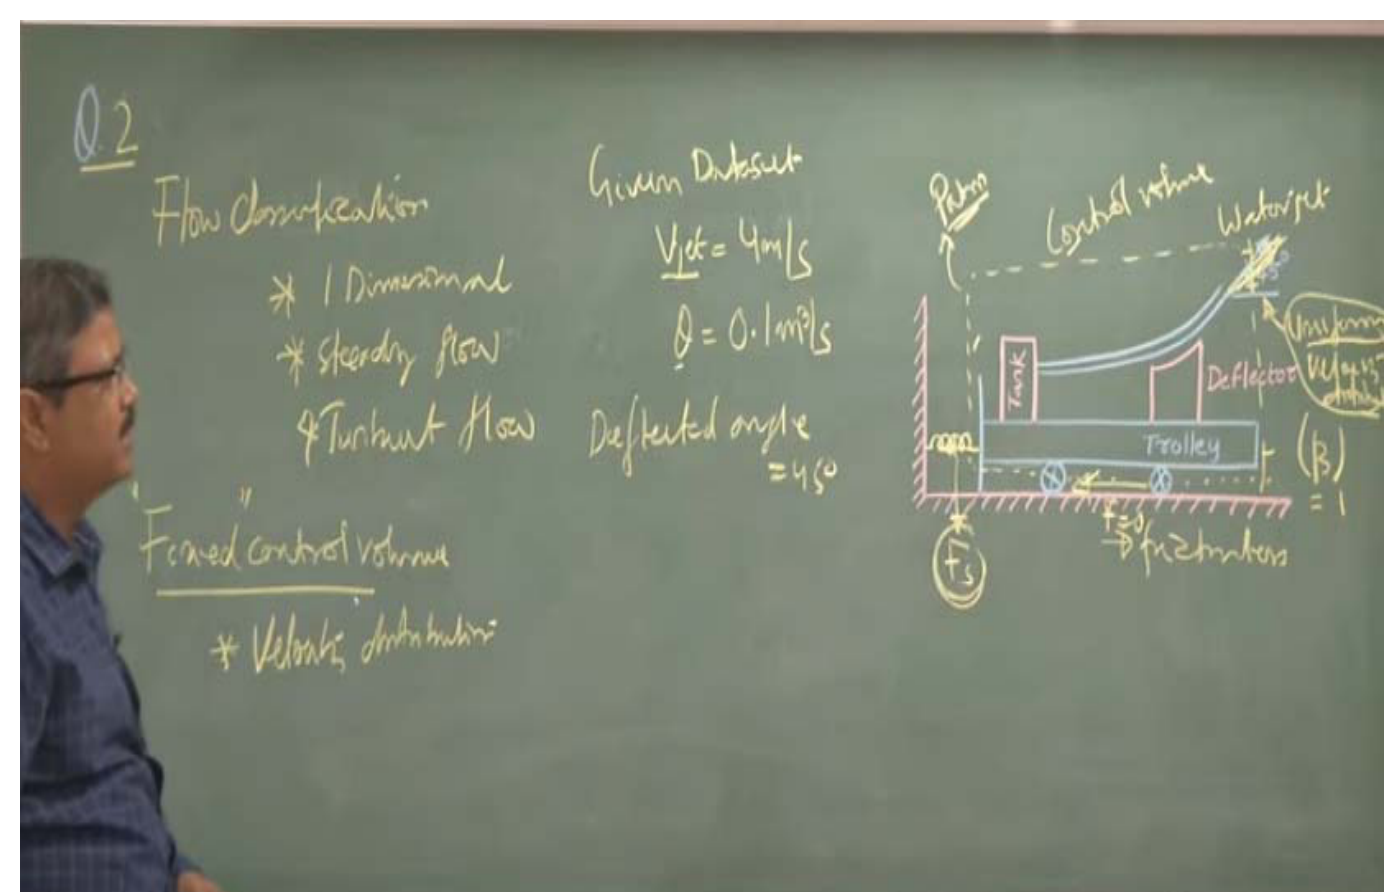 Q.2
Flow classification
* 1 Dimensional
* steady flow
* Turbulent flow
"Fixed" control volume
* Velocity distribution
Given Dataset
Vjet = 4m/s
Q = 0.1m³/s
Deflected angle
= 45°
Patm
Control volume
Water jet
45°
Uniform
Velocity
Tank
Deflector
Trolley
(β)
= 1
Fs
f=0
→ frictionless